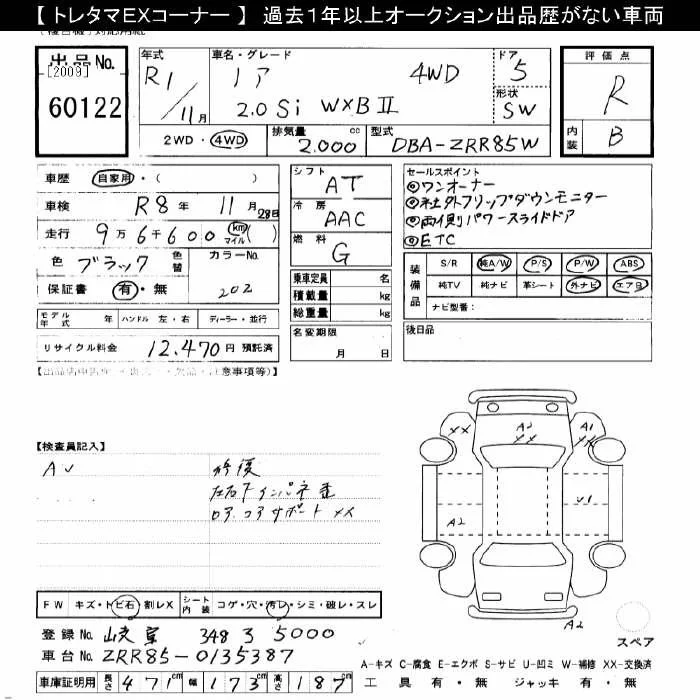 【 トレタマEXコーナー 】 過去１年以上オークション出品歴がない車両
出品No.
[2009]
60122
年式
R1/11月
車名・グレード
ノア 4WD
2.0 Si W×B II
ドア
5
形状
SW
評価点
R
内装
B
2WD・4WD
排気量 2.000 cc
型式 DBA-ZRR85W
車歴 自家用・( )
車検 R8年 11月 28日
走行 9万6千600 km マイル ( )
色 ブラック 色替
カラーNo. 202
保証書 有・無
モデル年式 年 ハンドル 左・右 ディーラー・並行
リサイクル料金 12.470円 預託済
シフト AT
冷房 AAC
燃料 G
乗車定員 名
積載量 kg
総重量 kg
名変期限 月 日
セールスポイント
◎ワンオーナー
◎社外フリップダウンモニター
◎両側パワースライドドア
◎ETC
装備品
S/R 純A/W P/S P/W ABS
純TV 純ナビ 革シート 外ナビ エアB
ナビ型番:
後日品
【検査員記入】
修復
コアサポート XX
XX
A2
XX
A1
XX
A2
U1
A2
FW キズ・トビ石・割レX
シート内装 コゲ・穴・汚レ・シミ・破レ・スレ
登録No. 348 5000
車台No. ZRR85-0135387
車庫証明用 長さ 471cm 幅 173cm 高さ 187cm
スペア
A-キズ C-腐食 E-エクボ S-サビ U-凹ミ W-補修 XX-交換済
工具 有・無 ジャッキ 有・無